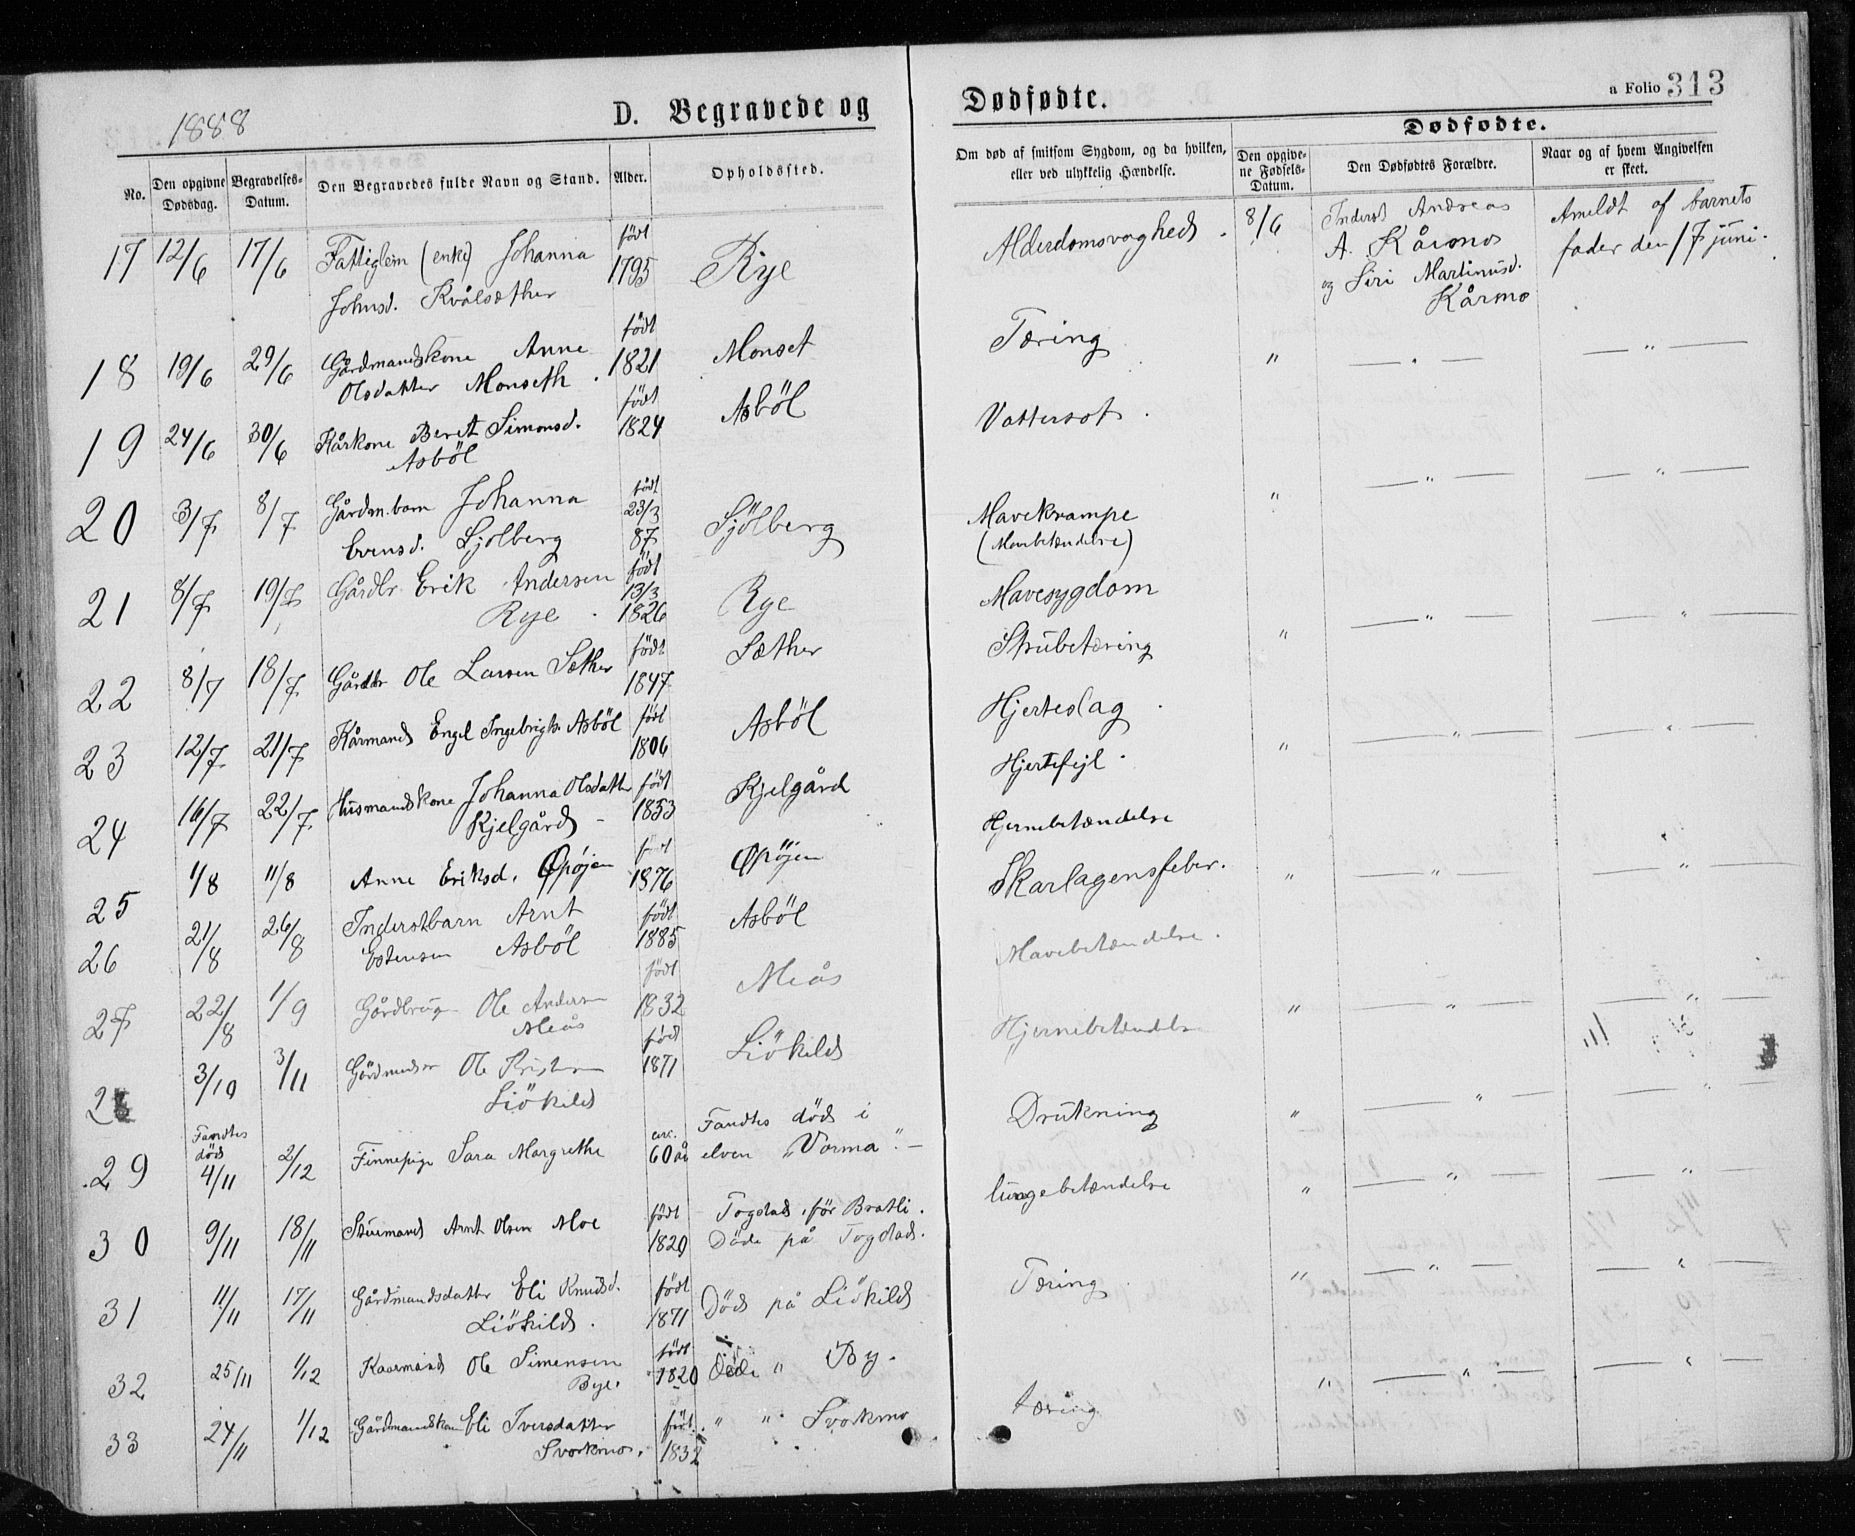 1888
D. Begravede og
Dødfødte.
a Folio 313
No.
Den opgivne Dødsdag.
Begravelses-Datum.
Den Begravedes fulde Navn og Stand.
Alder.
Opholdssted.
Om død af smitsom Sygdom, og da hvilken,
eller ved ulykkelig Hændelse.
Dødfødte.
Den opgivne Fødsels-Datum.
Den Dødfødtes Forældre.
Naar og af hvem Angivelsen
er skeet.
17 12/6 17/6 Fattiglem (enke) Johanna født 1795 Rye Alderdomsvaghed. 8/6 Inderst Andreas Anmeldt af barnets
Johnsd. Kvålsæther A. Kårmo fader den 17 juni.
og Siri Martinusd.
Kårmo
18 19/6 29/6 Gårdmandskone Anne født 1821 Monset Tæring " — " — — " —
Olsdatter Monseth.
19 24/6 30/6 Kårkone Beret Simonsd. født 1824 Asböl Vattersot.
Asböl
20 3/7 8/7 Gårdm.barn Johanna født 23/3 87 Sjölberg Mavekrampe " — " — — " —
Evensd. Sjölberg (Mavebetændelse)
21 8/7 19/7 Gårdbr. Erik Andersen født 13/3 1826 Rye Mavesygdom
Rye.
22 8/7 18/7 Gårdbr Ole Larsen Sæther født 1847 Sæther Strubetæring " — " — — " —
23 12/7 21/7 Kårmand Engel Ingebrigts. Asböl født 1806 Asböl Hjerteslag.
24 16/7 22/7 Husmandskone Johanna Olsdatter født 1853 Kjelgård Hjertefejl. " — " — — " —
Kjelgård
Hjernebetændelse
25 1/8 11/8 Anne Eriksd. Øpøjen født 1876 Øpöjen Skarlagensfeber. " — " — — " —
26 21/8 26/8 Inderstbarn Arnt født 1885 Asböl Mavebetændelse.
Estensen Asböl
27 22/8 1/9 Gårdbrug Ole Andersen født 1832 Meås Hjernebetændelse " — " — — " —
Meås
28 3/10 3/11 Ole Kristen født 1871 Liökild Drukning " — " — — " —
Liökild
29 Fandtes død 4/11 2/12 Finnepige Sara Margrethe circ. 60 år Fandtes død i
elven "Vorma". lungebetændelse " — " — — " —
30 9/11 18/11 Arnt Olsen Moe født 1820 Togstad, för Bratli.
Døde på Togstad.
31 11/11 17/11 Gårdmandsdatter Eli Knudsd. født 1871 Död på Liökild Tæring " — " — — " —
Liökild.
32 25/11 1/12 Kaarmand Ole Simensen født 1820 Døde " By.
Bye.
33 24/11 1/12 Gårdmandskone Eli Iversdatter født 1832 " " Svorkmo tæring " — " — — " —
Svorkmo.